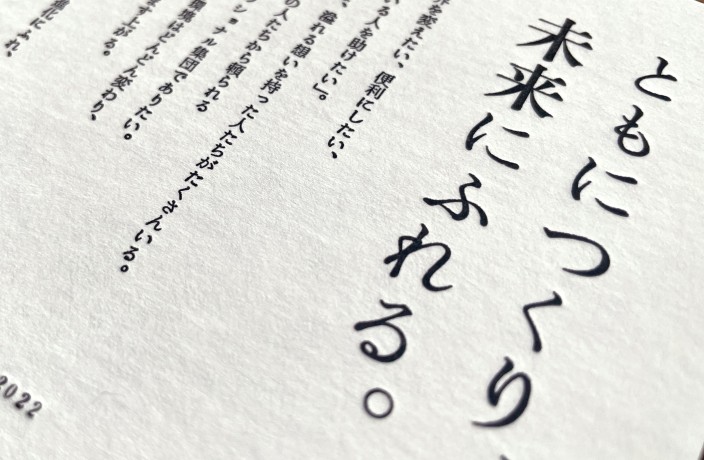 ともにつくり、
未来にふれる。
を変えたい、便利にしたい、
る人を助けたい」。
、溢れる想いを持った人たちがたくさんいる。
の人たちから頼られる
ショナル集団でありたい。
環境はどんどん変わり、
ます上がる。
進化にふれ、
2022